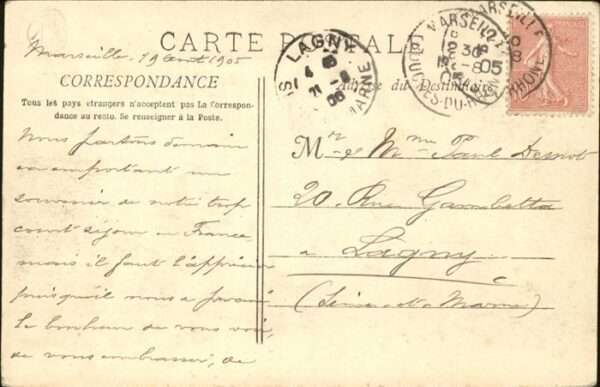 CARTE POSTALE
Marseille, 19 Août 1905
CORRESPONDANCE
Tous les pays étrangers n'acceptent pas La Correspon-
dance au recto. Se renseigner à la Poste.
Nous partons demain
en emportant un
souvenir de notre trop
court séjour en France,
mais il faut l'apprécier
puisqu'il nous a
le bonheur de vous voir,
de vous embrasser, de
Adresse du Destinataire
LAGNY
MARNE
MARSEILLE
BOUCHES-DU-RHONE
MARSEILLE
RHONE
Mr & Mme Paul
20, Rue Gambetta
à Lagny
(Seine et Marne)